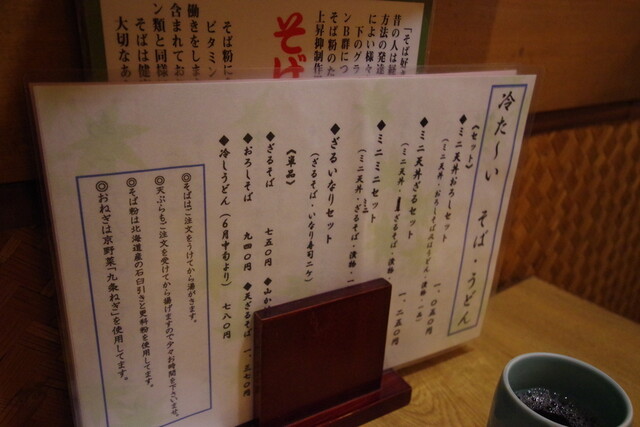 冷た～い そば・うどん
《セット》
◆ミニ天丼おろしセット
(ミニ天丼・おろしそば又はうどん・漬物・一品) 一、〇五〇円
◆ミニ天丼ざるセット
(ミニ天丼・ざるそば・漬物・一 一、二五〇円
◆ミニミニセット
(ミニ天丼・ミニざるそば・漬物・一
◆ざるいなりセット
(ざるそば・いなり寿司二ケ)
《単品》
◆ざるそば 七五〇円
◆山か
◆おろしそば 九四〇円
◆天ざるそば 一、五七〇円
◆冷しうどん(6月中旬より) 七八〇円
◎そばはご注文をうけてから湯がきます。
◎天ぷらもご注文を受けてから揚げますので少々お時間を下さいませ。
◎そば粉は北海道産の石臼引きと更科粉を使用してます。
◎おねぎは京野菜「九条ねぎ」を使用してます。
「そば好き
昔の人は経
によい様々
方法の発達
下のグラ
ンB群につ
そば粉のた
上昇抑制作
そば
そば粉に
ビタミン
働きをしま
含まれてお
ン類と同様
そばは健
大切なあ